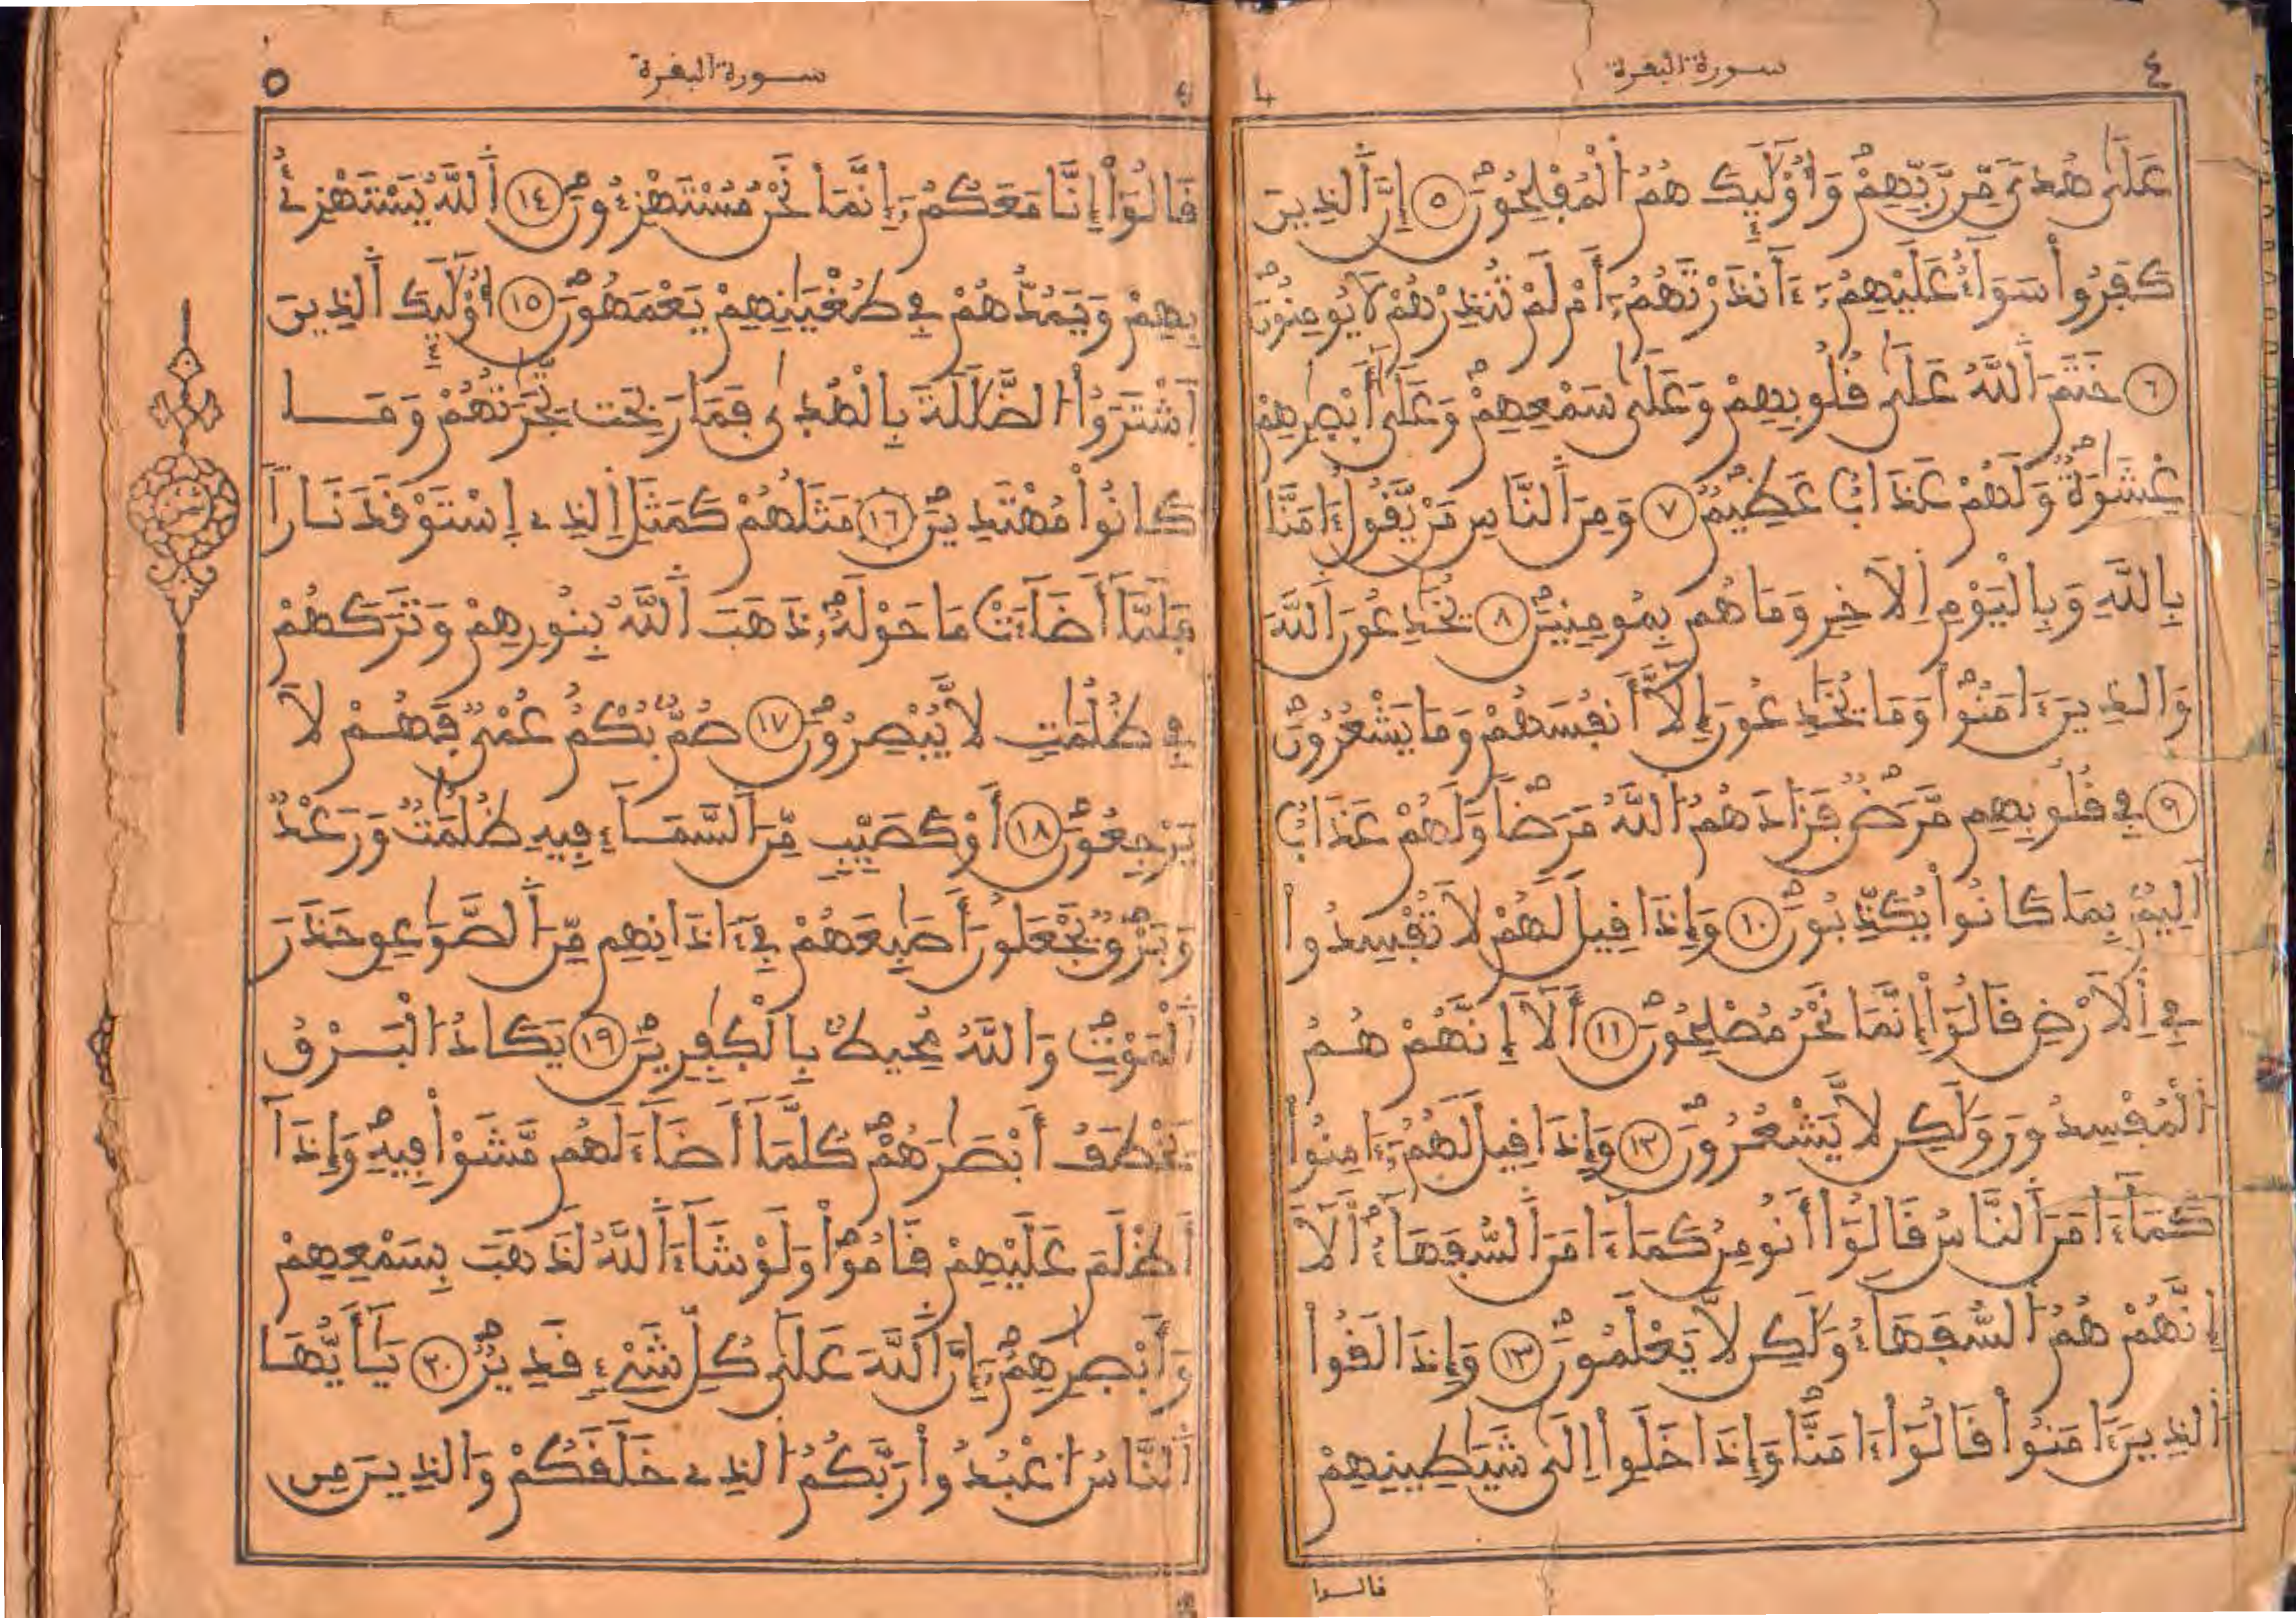 ٤ سورة البقرة 4
عَلَىٰ هُدىً مِّن رَّبِّهِمْ وَأُوْلَٰٓئِكَ هُمُ اُلْمُفْلِحُونَ ٥ إِنَّ اَلذِينَ
كَفَرُواْ سَوَآءٌ عَلَيْهِمُۥٓ ءَآنذَرْتَهُمُۥٓ أَمْ لَمْ تُنذِرْهُمْ لَا يُومِنُونَ
٦ خَتَمَ اَللَّهُ عَلَىٰ قُلُوبِهِمْ وَعَلَىٰ سَمْعِهِمْ وَعَلَىٰٓ أَبْصٰرِهِمْ
غِشَٰوَةٌ وَلَهُمْ عَذَابٌ عَظِيمٌ ٧ وَمِنَ اَلنَّاسِ مَنْ يَّقُولُ ءَامَنَّا
بِاللَّهِ وَبِالْيَوْمِ اِلَاخِرِ وَمَا هُم بِمُومِنِينَ ٨ يُخَٰدِعُونَ اَللَّهَ
وَالذِينَ ءَامَنُواْ وَمَا يُخَٰدِعُونَ إِلَّآ أَنفُسَهُمْ وَمَا يَشْعُرُونَ
٩ فِے قُلُوبِهِم مَّرَضٌ فَزَادَهُمُ اُللَّهُ مَرَضاً وَلَهُمْ عَذَابٌ
اَلِيمٌ بِمَا كَانُواْ يُكَذِّبُونَ ١٠ وَإِذَا قِيلَ لَهُمْ لَا تُفْسِدُواْ
فِے اِلَارْضِ قَالُوٓاْ إِنَّمَا نَحْنُ مُصْلِحُونَ ١١ أَلَآ إِنَّهُمْ هُمُ
اُلْمُفْسِدُونَ وَلَٰكِن لَّا يَشْعُرُونَ ١٢ وَإِذَا قِيلَ لَهُمُۥٓ ءَامِنُواْ
كَمَآ ءَامَنَ اَلنَّاسُ قَالُوٓاْ أَنُومِنُ كَمَآ ءَامَنَ اَلسُّفَهَآءُ أَلَآ
إِنَّهُمْ هُمُ اُلسُّفَهَآءُ وَلَٰكِن لَّا يَعْلَمُونَ ١٣ وَإِذَا لَقُواْ
اُلذِينَ ءَامَنُواْ قَالُوٓاْ ءَامَنَّا وَإِذَا خَلَوِاْ اِلَىٰ شَيَٰطِينِهِمْ
قالوا
سورة البقرة ٥
قَالُوٓاْ إِنَّا مَعَكُمُۥٓ إِنَّمَا نَحْنُ مُسْتَهْزِءُونَ ١٤ اَللَّهُ يَسْتَهْزِۓُ
بِهِمْ وَيَمُدُّهُمْ فِے طُغْيَٰنِهِمْ يَعْمَهُونَ ١٥ أُوْلَٰٓئِكَ اَلذِينَ
اَشْتَرَوُاْ اُلضَّلَٰلَةَ بِالْهُدىٰ فَمَا رَبِحَت تِّجَٰرَتُهُمْ وَمَا
كَانُواْ مُهْتَدِينَ ١٦ مَثَلُهُمْ كَمَثَلِ اِلذِے اِسْتَوْقَدَ نَاراً
فَلَمَّآ أَضَآءَتْ مَا حَوْلَهُۥ ذَهَبَ اَللَّهُ بِنُورِهِمْ وَتَرَكَهُمْ
فِے ظُلُمَٰتٍ لَّا يُبْصِرُونَ ١٧ صُمٌّ بُكْمٌ عُمْيٌ فَهُمْ لَا
يَرْجِعُونَ ١٨ أَوْ كَصَيِّبٍ مِّنَ اَلسَّمَآءِ فِيهِ ظُلُمَٰتٌ وَرَعْدٌ
وَبَرْقٌ يَجْعَلُونَ أَصَٰبِعَهُمْ فِےٓ ءَاذَانِهِم مِّنَ اَلصَّوَٰعِقِ حَذَرَ
اَلْمَوْتِ وَاللَّهُ مُحِيطٌ بِالْكٰفِرِينَ ١٩ يَكَادُ اُلْبَرْقُ
يَخْطَفُ أَبْصَٰرَهُمْ كُلَّمَآ أَضَآءَ لَهُم مَّشَوْاْ فِيهِ وَإِذَآ
أَظْلَمَ عَلَيْهِمْ قَامُواْ وَلَوْ شَآءَ اَللَّهُ لَذَهَبَ بِسَمْعِهِمْ
وَأَبْصٰرِهِمُۥٓ إِنَّ اَللَّهَ عَلَىٰ كُلِّ شَےْءٍ قَدِيرٌ ٢٠ يَٰٓأَيُّهَا
اَلنَّاسُ اُعْبُدُواْ رَبَّكُمُ اُلذِے خَلَقَكُمْ وَالذِينَ مِن
ثمن